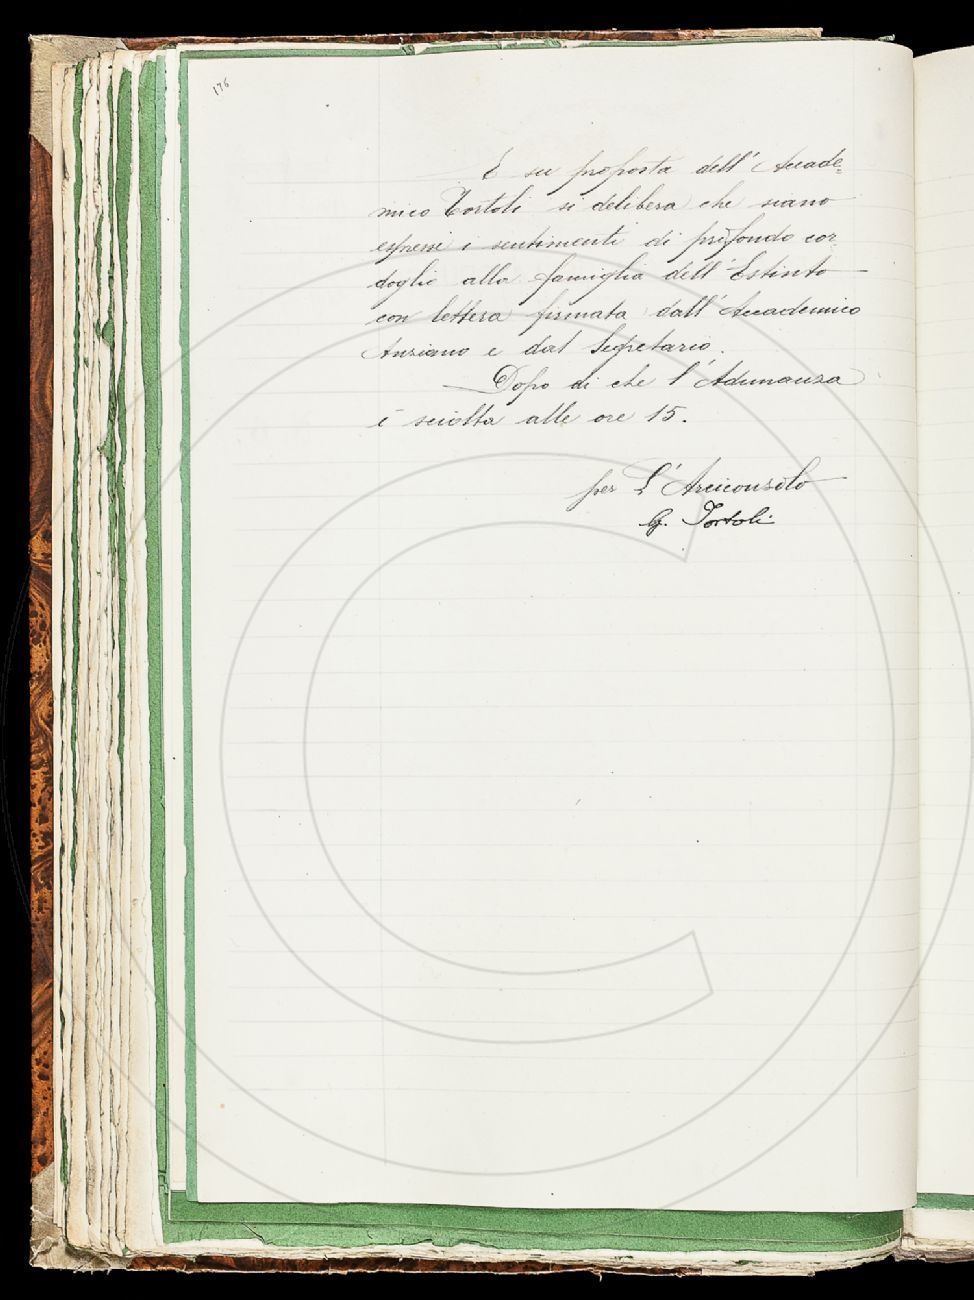 176
E su proposta dell'Accade=
mico Tortoli si delibera che siano
espressi i sentimenti di profondo cor-
doglio alla famiglia dell'Estinto
con lettera firmata dall'Accademico
Anziano e dal Segretario.
Dopo di che l'Adunanza
è sciolta alle ore 15.
per L'Arciconsolo
G. Tortoli